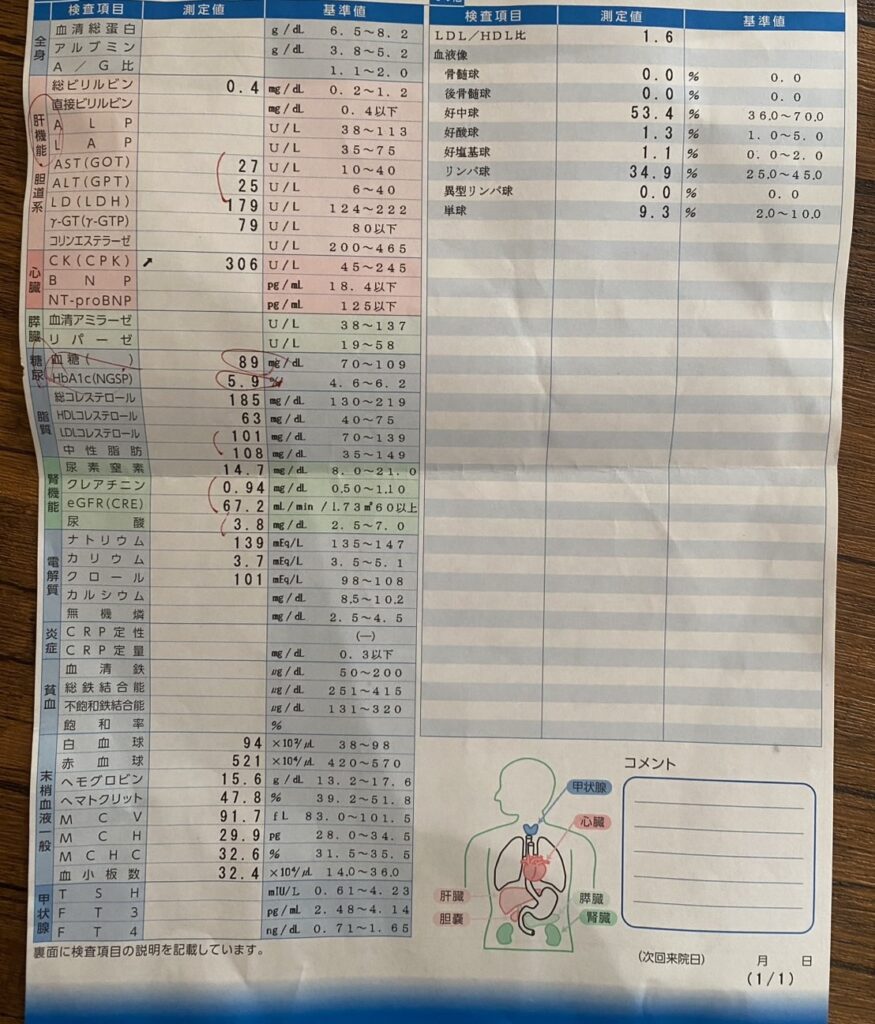 検査項目 測定値 基準値
全身
血清総蛋白 g/dL 6.5〜8.2
アルブミン g/dL 3.8〜5.2
A/G比 1.1〜2.0
肝機能 胆道系
総ビリルビン 0.4 mg/dL 0.2〜1.2
直接ビリルビン mg/dL 0.4以下
ALP U/L 38〜113
LAP U/L 35〜75
AST(GOT) 27 U/L 10〜40
ALT(GPT) 25 U/L 6〜40
LD(LDH) 179 U/L 124〜222
γ-GT(γ-GTP) 79 U/L 80以下
コリンエステラーゼ U/L 200〜465
心臓
CK(CPK) ↗ 306 U/L 45〜245
BNP pg/mL 18.4以下
NT-proBNP pg/mL 125以下
膵臓
血清アミラーゼ U/L 38〜137
リパーゼ U/L 19〜58
糖尿
血糖( ) 89 mg/dL 70〜109
HbA1c(NGSP) 5.9 % 4.6〜6.2
脂質
総コレステロール 185 mg/dL 130〜219
HDLコレステロール 63 mg/dL 40〜75
LDLコレステロール 101 mg/dL 70〜139
中性脂肪 108 mg/dL 35〜149
腎機能
尿素窒素 14.7 mg/dL 8.0〜21.0
クレアチニン 0.94 mg/dL 0.50〜1.10
eGFR(CRE) 67.2 mL/min/1.73㎡ 60以上
尿酸 3.8 mg/dL 2.5〜7.0
電解質
ナトリウム 139 mEq/L 135〜147
カリウム 3.7 mEq/L 3.5〜5.1
クロール 101 mEq/L 98〜108
カルシウム mg/dL 8.5〜10.2
無機燐 mg/dL 2.5〜4.5
炎症
CRP定性 (−)
CRP定量 mg/dL 0.3以下
貧血
血清鉄 μg/dL 50〜200
総鉄結合能 μg/dL 251〜415
不飽和鉄結合能 μg/dL 131〜320
飽和率 %
末梢血液一般
白血球 94 ×10²/μL 38〜98
赤血球 521 ×10⁴/μL 420〜570
ヘモグロビン 15.6 g/dL 13.2〜17.6
ヘマトクリット 47.8 % 39.2〜51.8
MCV 91.7 fL 83.0〜101.5
MCH 29.9 pg 28.0〜34.5
MCHC 32.6 % 31.5〜35.5
血小板数 32.4 ×10⁴/μL 14.0〜36.0
甲状腺
TSH mIU/L 0.61〜4.23
FT3 pg/mL 2.48〜4.14
FT4 ng/dL 0.71〜1.65
裏面に検査項目の説明を記載しています。
検査項目 測定値 基準値
LDL/HDL比 1.6
血液像
骨髄球 0.0 % 0.0
後骨髄球 0.0 % 0.0
好中球 53.4 % 36.0〜70.0
好酸球 1.3 % 1.0〜5.0
好塩基球 1.1 % 0.0〜2.0
リンパ球 34.9 % 25.0〜45.0
異型リンパ球 0.0 % 0.0
単球 9.3 % 2.0〜10.0
甲状腺
心臓
肝臓
胆嚢
膵臓
腎臓
コメント
(次回来院日) 月 日
(1/1)